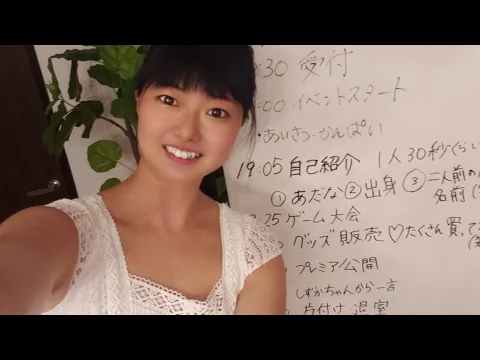 :30 受付
:00 イベントスタート
・あいさつ・かんぱい
19:05 自己紹介 1人30秒くらい
①あだな②出身③二人前の
名前
:25 ゲーム大会
グッズ販売♡たくさん買って
プレミア公開
しずかちゃんから一言
片付け 退室